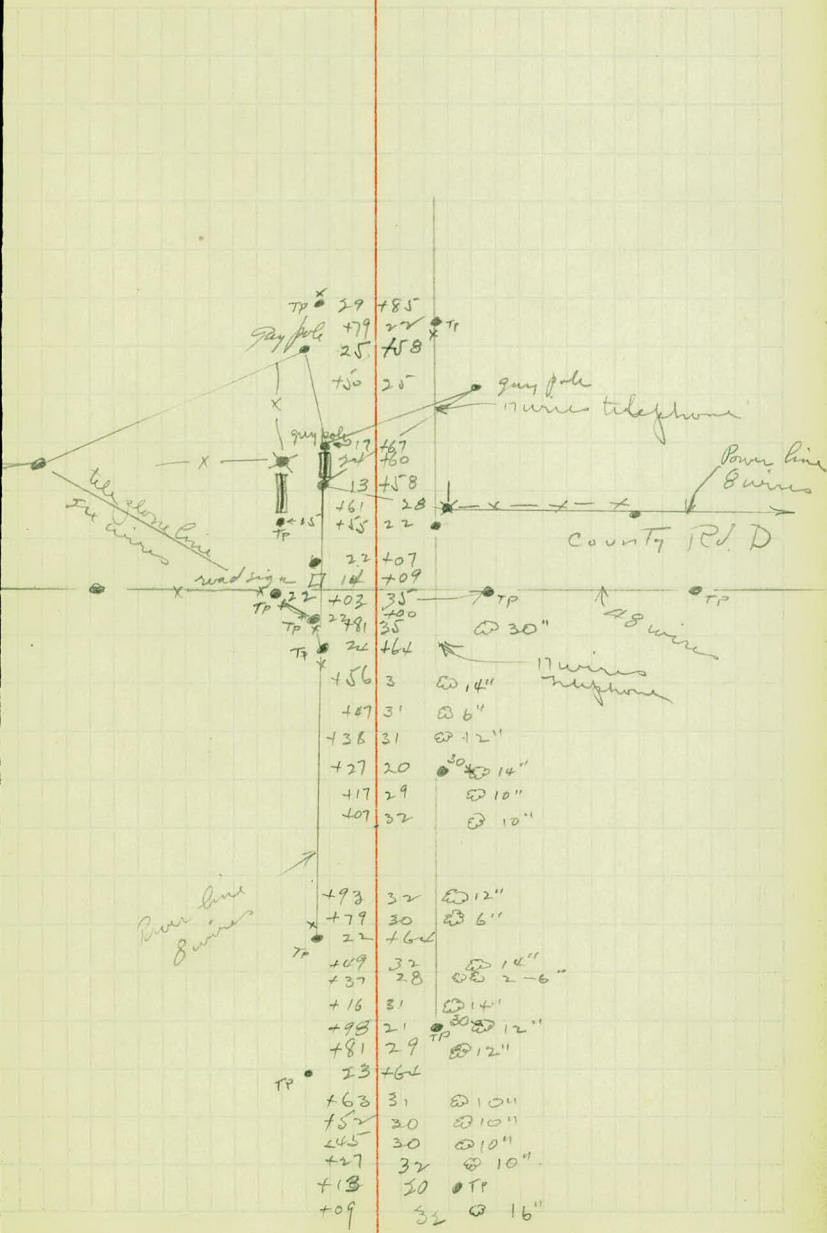 TP 29 +85
+79 22 TP
guy pole 25 +58
+50 25 guy pole
17 wires telephone
guy pole 17 +67
24 +60
Power line
8 wires
13 +58
+61 28
TP 15 +55 22
County Rd. D
telephone line
wires
22 +07
road sign 14 +09
TP 22 +03 35 TP TP
+00
48 wires
TP 22 +81 35 30"
TP 24 +64
17 wires
telephone
+56 3 14"
+47 31 6"
+38 31 12"
+27 20 30 14"
+17 29 10"
+07 32 10"
Power line
8 wires
+93 32 12"
+79 30 6"
TP 22 +64
+49 32 14"
+37 28 2-6"
+16 31 14"
+98 21 TP 30 12"
+81 29 12"
TP 23 +64
+63 31 10"
+52 30 10"
+45 30 10"
+27 32 10"
+13 20 TP
+09 32 16"